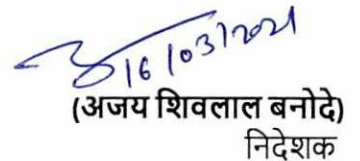 16/03/2021
(अजय शिवलाल बनोदे)
निदेशक